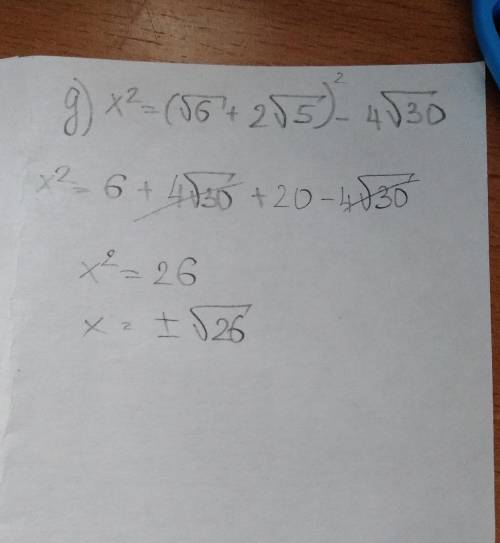 g) x² = (√6 + 2√5)² - 4√30
x² = 6 + 4√30 + 20 - 4√30
x² = 26
x = ± √26